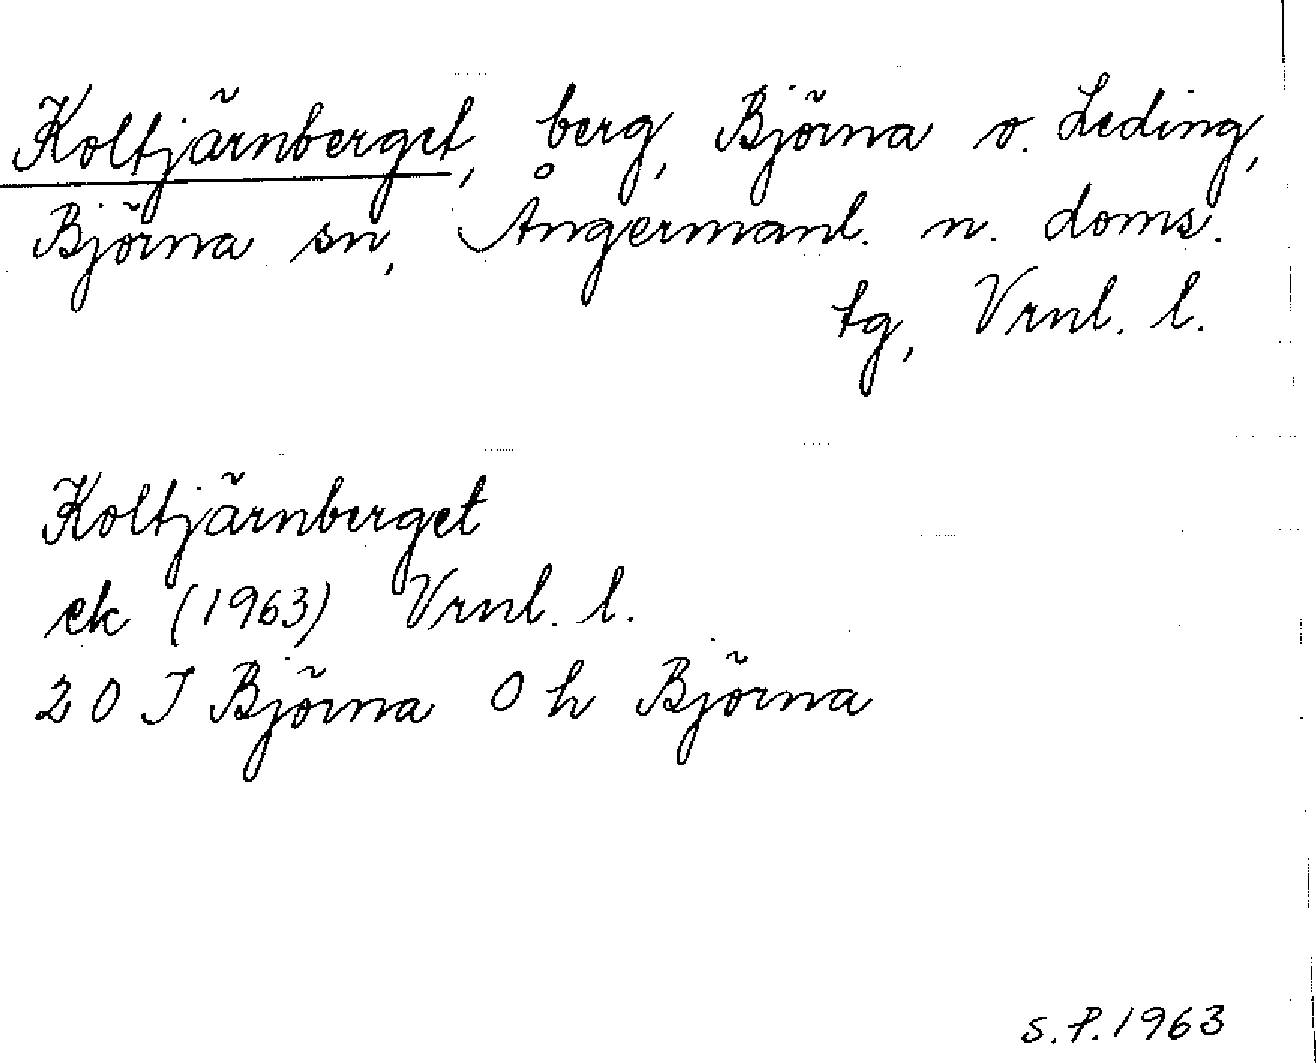 Koltjärnberget, berg, Björna o. Leding,
Björna sn, Ångermanl. n. doms.
tg, Vrnl. l.
Koltjärnberget
ek (1963) Vrnl. l.
20 I Björna 0 h Björna
S.P. 1963